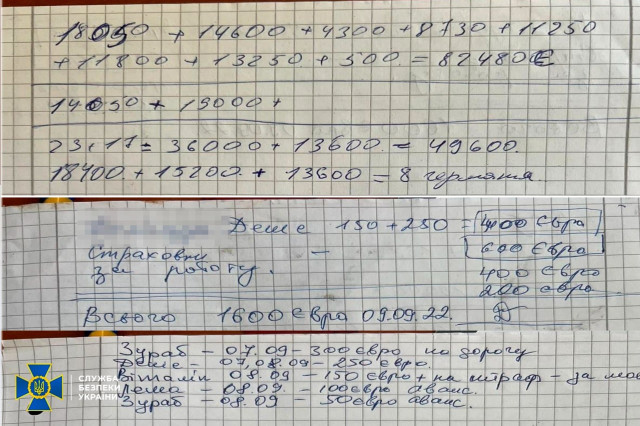 18050 + 14600 + 4300 + 8730 + 11250
+ 11800 + 13250 + 500. = 82480€
14050 + 19000 +
23.11 = 36000 + 13600. = 49600.
18400. + 15200. + 13600 = 8 германия.
Деше 150 + 250 = 400 євра
Страховку — 600 євра
за роботу. 400 євро
200 євро
Всього 1600 євро 09.09.22.
Зураб – 07.09 – 300 євро на дорогу
Деше – 07,08.09 – 250 євро.
Віталік 08.09 – 150 євро + на штраф – за
– 08.09. – 100 євро аванс.
Зураб – 08.09 – 50 євро аванс.
СЛУЖБА
БЕЗПЕКИ
УКРАЇНИ